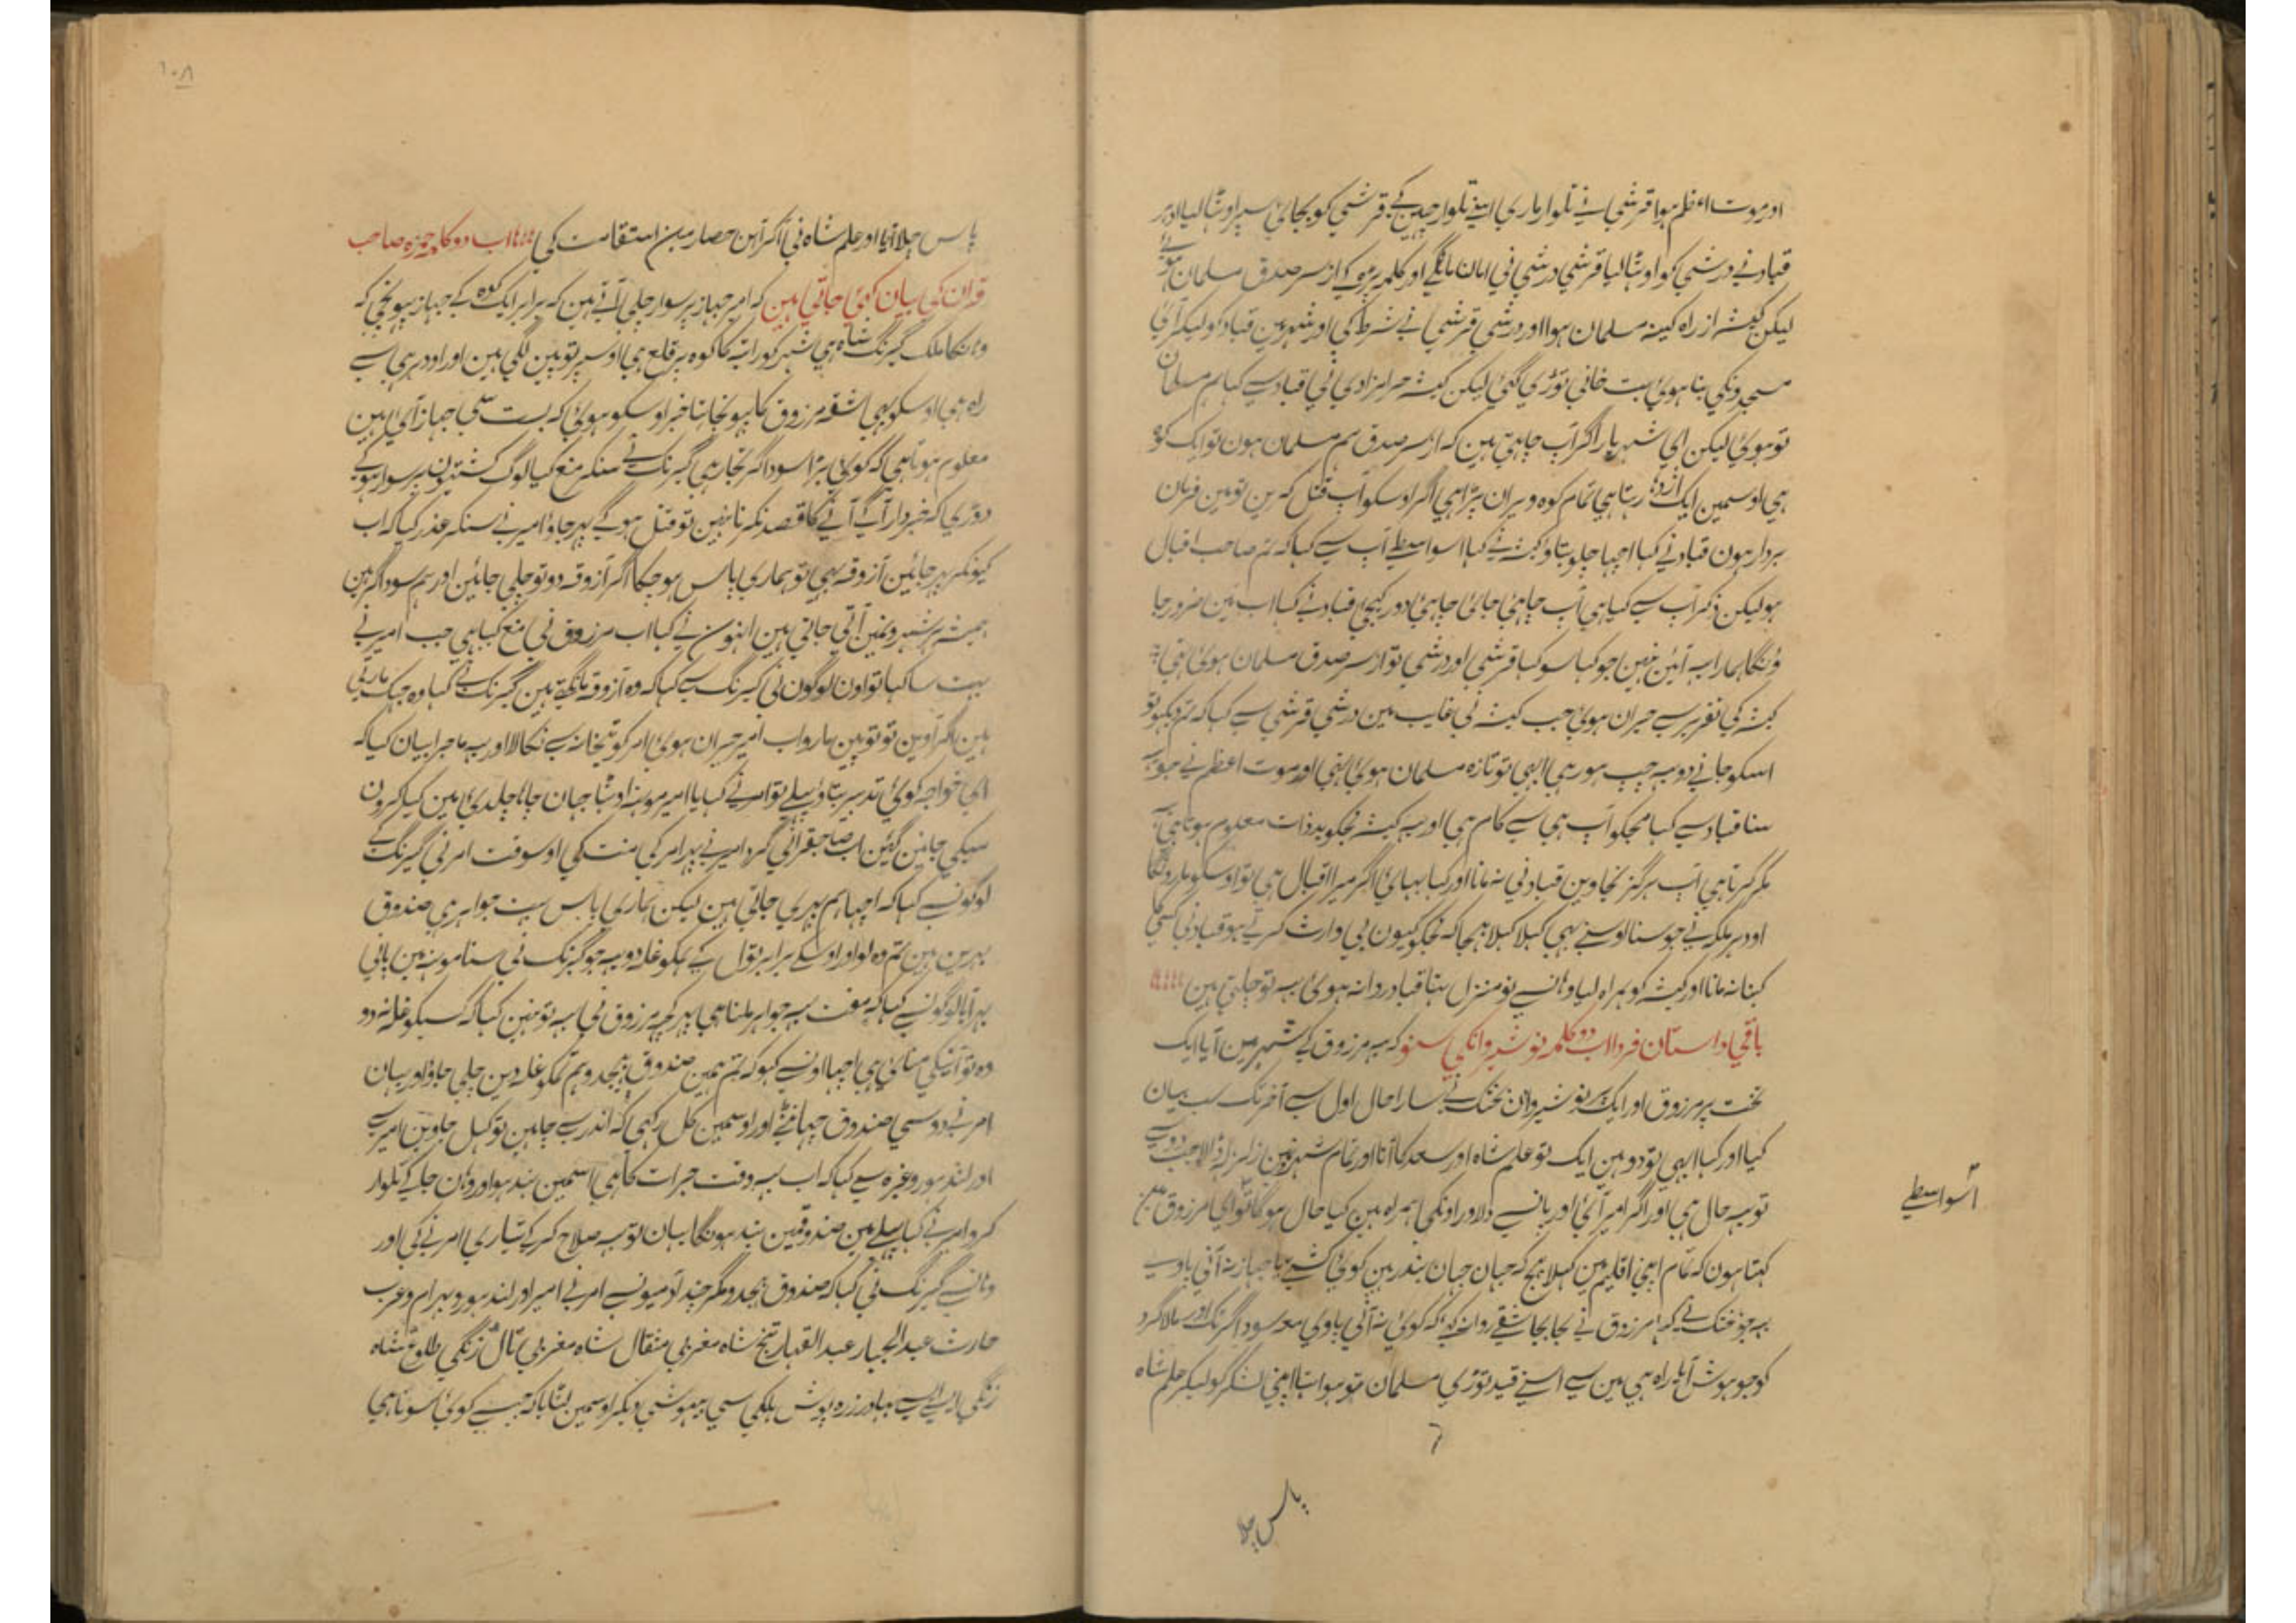 اور موت اعظم ہوا قرشمی نے تلوار ماری اسنے تلوار چہین کے قرشمی کو بجای سپر اوٹھا لیا اودہر
قباد نے درشمی کو اوٹھا لیا قرشمی درشمی نی امان مانگی اور کلمہ پڑہ کے از سر صدق مسلمان ہوئے
لیکن کیشہ از راہ کینہ مسلمان ہوا اور درشمی قرشمی نے شرط کی اور شہر مین قباد کو لیکر آئ
مسجدونکی بنا ہوئ بت خانی توڑی گئی لیکن کیشہ حرامزادی نی قباد سے کہا ہم مسلمان
تو ہوئ لیکن ای شہریار اگر آپ چاہتی ہین کہ از سر صدق ہم مسلمان ہون تو ایک کوہ
ہی اوسمین ایک اژدہا رہتا ہی تمام کوہ ویران پڑا ہی اگر اوسکو آپ قتل کرین تو مین فرمان
بردار ہون قباد نے کہا اچہا چلو بتاو کیشہ نے کہا اسواسطے آپ سے کہا کہ تم صاحب اقبال
ہو لیکن ذکر آپ سے کیا ہی آپ چاہئ جائ چاہئ دور کیجئ قباد نے کہا اب مین ضرور جا
ؤنگا ہمارا یہ آئین نہین جو کہا سو کہا قرشمی اور درشمی تو از سر صدق مسلمان ہوئ تہی
کیشہ کی تقریر سے حیران ہوئ جب کیشہ نی غایب مین درشمی قرشمی سے کہا کہ تم دیکہو تو
اسکو جانے دو یہ چپ ہو رہی ابہی تو تازہ مسلمان ہوئ تہی اور موت اعظم نے جو یہ
سنا قباد سے کہا مجکو آپ ہی سے کام ہی اور یہ کیشہ مجکو بدذات معلوم ہوتا ہی یہ
مکر کرتا ہی آپ ہرگز نجاوین قباد نی نہ مانا اور کہا بہائ اگر میرا اقبال ہی تو اوسکو مارونگا
اودہر ملکہ نے جو سنا اوسنے بہی کہلا بہیجا کہ مجکو کیون بی وارث کرتے ہو قباد نی کسی کا
کہنا نہ مانا اور کیشہ کو ہمراہ لیا وہانسے نو منزل تہا قباد روانہ ہوئ یہ تو چلتی ہین
باقی داستان فردا اب دو کلمہ نوشیروانکی سنو کہ یہ مرزوق کے شہر مین آیا ایک
تخت پر مرزوق اور ایک پر نوشیروان بختک نے سارا حال اول سے آخر تک سب بیان
کیا اور کہا ابہی تو دو ہین ایک تو علم شاہ اور سعد کا آنا اور تمام شہر مین زلزلہ ڈالا جب دو سے
تو یہ حال ہی اور اگر امیر آئ اور پانسے دلاور اونکی ہمراہ ہین کیا حال ہوگا تو ای مرزوق مین
اسواسطے
کہتا ہون کہ تمام اپنی اقلیم مین کہلا بہیج کہ جہان جہان بندر ہین کوئ کشتی یا جہاز نہ آنی پاوے
یہ جو بختک نے کہا مرزوق نے بجا بجا شقے روانہ کئے کہ کوئ نہ آنی پاوی معہ سوداگر تک اور سالا گرد
کو جو ہوش آیا راہ ہی مین سے اسنے قید توڑی مسلمان تو ہوا تہا اپنی لشکر کو لیکر علم شاہ
٦
پاس چلا
١٠٨
پاس چلا آیا اور علم شاہ نی آکر آہن حصار مین استقامت کی اب دو کلمہ حمزہ صاحب
قران کی بیان کہئ جاتی ہین کہ امیر جہاز پر سوار چلی آتے ہین کہ برابر ایک کوہ کے جہاز پہونچی کہ
وہانکا ملک گیرنگ شاہ ہی شہر کو راستہ کا کوہ پر قلعہ ہی اوسپر توپین لگی ہین اور اودہر ہی سے
راہ ہی اوسکو بہی شقہ مرزوق کا پہونچا تہا خبر اوسکو ہوئ کہ بہت سی جہاز آئ ہین
معلوم ہوتا ہی کہ کوئ بڑا سوداگر تجار ہی گیرنگ نے سنکر منع کیا لوگ کشتیون پر سوار ہو کے
دوڑی کہ خبردار آگے آنے کا قصد نکرنا نہین تو قتل ہو گے پہر جاؤ امیر نے سنکر عذر کیا کہ اب
کیونکر پہر جائین آزوقہ بہی تو ہماری پاس ہو چکا اگر آزوقہ دو تو چلی جائین اور ہم سوداگر ہین
ہمیشہ ہر شہرونمین آتی جاتی ہین انہون نے کہا اب مرزوق نی منع کیا ہی جب امیر نے
بہت سا کہا تو اون لوگون نی گیرنگ سے کہا کہ وہ آزوقہ مانگتے ہین گیرنگ نے کہا وہ جہک مارتی
ہین اگر آوین تو توپین مارو اب امیر حیران ہوئ امر کو تہخانہ سے نکالا اور یہ ماجرا بیان کیا کہ
ای خواجہ کوئ تدبیر بتاؤ پہلے تو امر نے کہا یا امیر مونہ اوٹھا جہان چاہا چلدئ مین کیا کرون
سبکی جانین گئین اب صاحبقرانی گرد امیر نے پہر امر کی منت کی اوسوقت امر نی گیرنگ کے
لوگونسے کہا کہ اچہا ہم پہری جاتی ہین لیکن ہماری پاس بہت جواہر ہی صندوق
بہرین ہین تم وہ لو اور اوسکے برابر تول کے ہمکو غلہ دو یہ جو گیرنگ نی سنا مونہ مین پانی
بہر آیا لوگونسے کہا کہ مفت یہ جواہر ملتا ہی اگرچہ مرزوق نی یہ تو نہین کہا کہ کسیکو غلہ نہ دو
وہ تو آنیکی مناہی ہی اچہا اونسے کہو کہ تم ہمین صندوق بہیجدو ہم تمکو غلہ دین چلی جاؤ اور یہان
امر نے دو سی صندوق چہانٹے اور اوسمین کل رکہی کہ اندر سے چاہین تو کہل جاوین امیر سے
اور لندہور وغیرہ سے کہا کہ اب یہ وقت جرات کا ہی اسمین بند ہو اور وہان جا کے تلوار
کرو امیر نے کہا پہلے مین صندوقمین بند ہونگا یہان تو یہ صلاح کر کے تیاری امر نے کی اور
وہانسے گیرنگ نی کہا کہ صندوق بہیجدو مگر چند آدمیونسے امر نے امیر اور لندہور و بہرام و عرب
حارث عبدالجبار عبدالقہار تیخ شاہ مغربی مثقال شاہ مغربی ٹال زنگی طلوع شاہ
زنگی ایسے ایسے بہادر زرہ پوش ہلکی سی بیہوشی دیکر اوسمین لٹایا کہ جیسے کوئ سوتا ہی